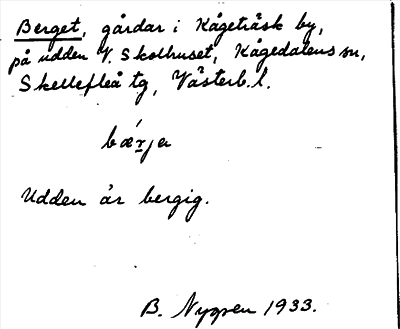 Berget, gårdar i Kågeträsk by,
på udden V. Skolhuset, Kågedalens sn,
Skellefteå tg, Västerb. l.
bǽrja
Udden är bergig.
B. Nygren 1933.